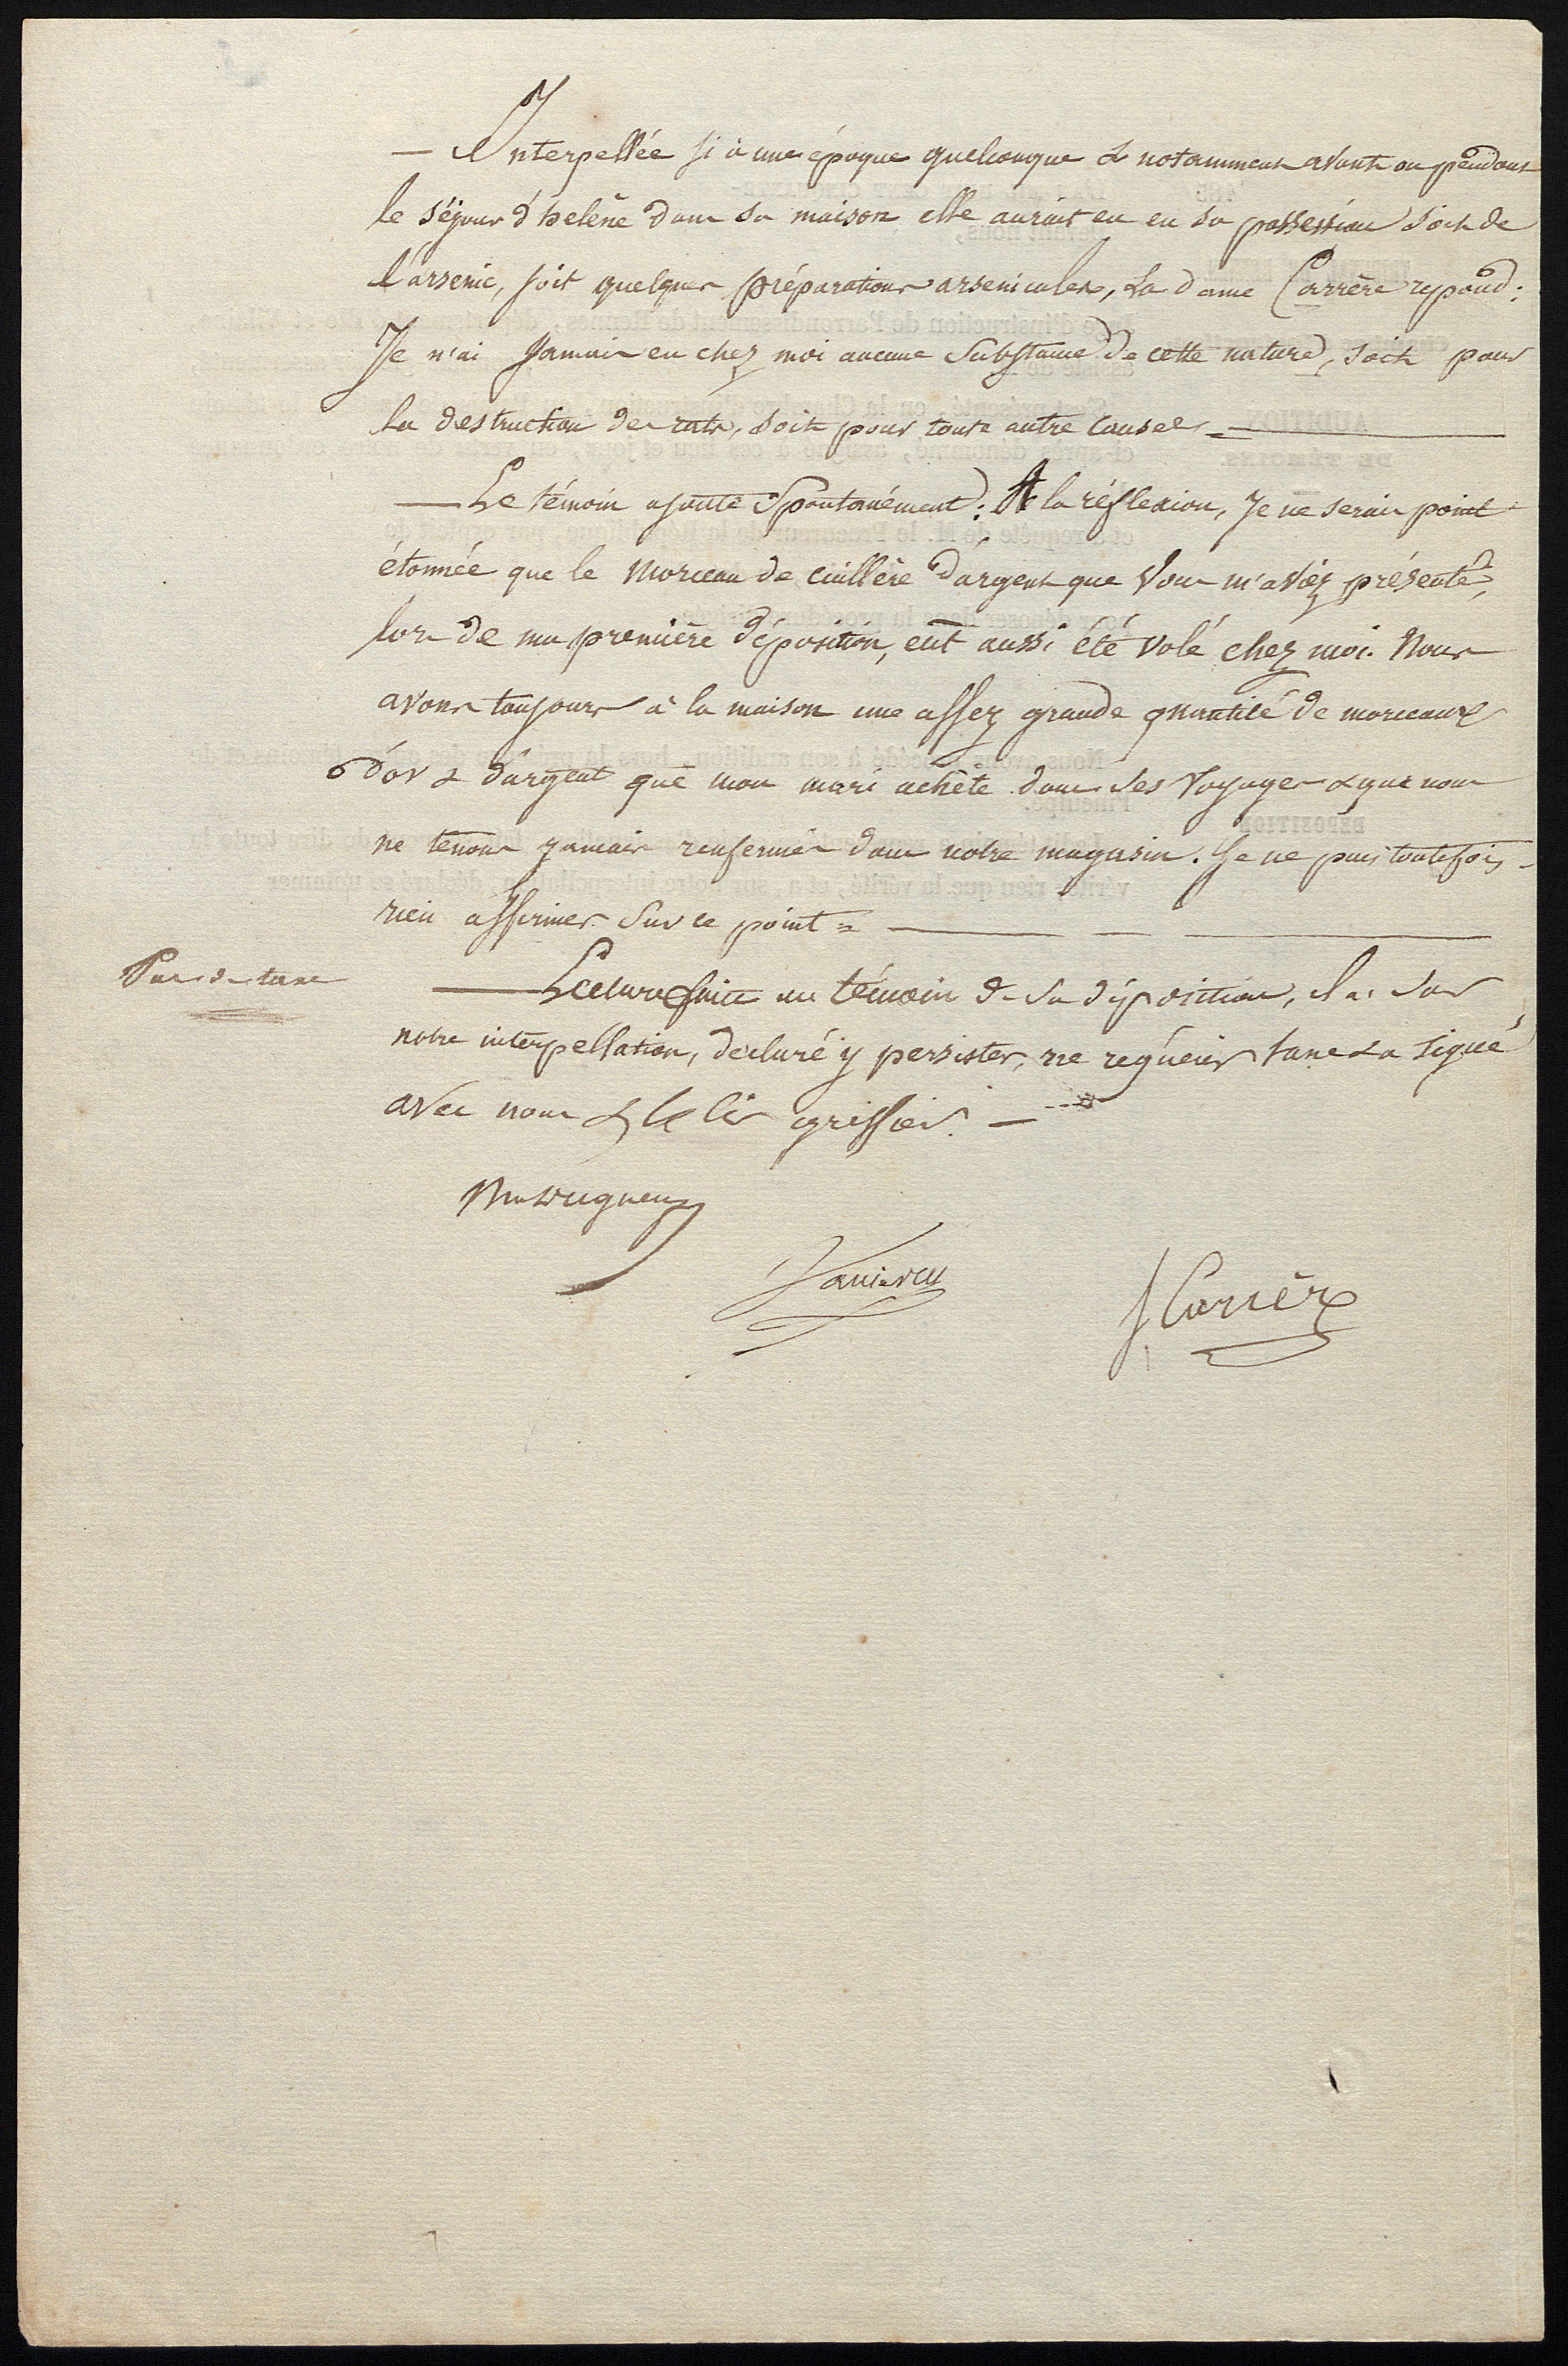 — Interpellée si à une époque quelconque & notamment avant ou pendant
le séjour d'helène dans sa maison elle aurait eu en sa possession soit de
l'arsenic, soit quelques préparations arsenicales, La dame Carrère repond :
Je n'ai Jamais eu chez moi aucune Substance de cette nature, soit pour
la destruction des rats, soit pour toute autre Cause =
— Le témoin ajoute Spontanément : A la réflexion, Je ne serais point
étonnée que le morceau de cuillère d'argent que Vous m'avez présenté,
lors de ma première déposition, eut aussi été volé chez moi. Nous
avons toujours à la maison une assez grande quantité de morceaux
d'or & d'argent que mon mari achète dans ses Voyages & que nous
ne tenons jamais renfermés dans notre magasin. Je ne puis toutefois
rien affirmer Sur ce point =
Pas de taxe
— Lecture faite au témoin de sa déposition, il a, sur
notre interpellation, declaré y persister, ne requérir taxe & a signé
avec nous & le Cis greffier. —
Vannier
J Carrère